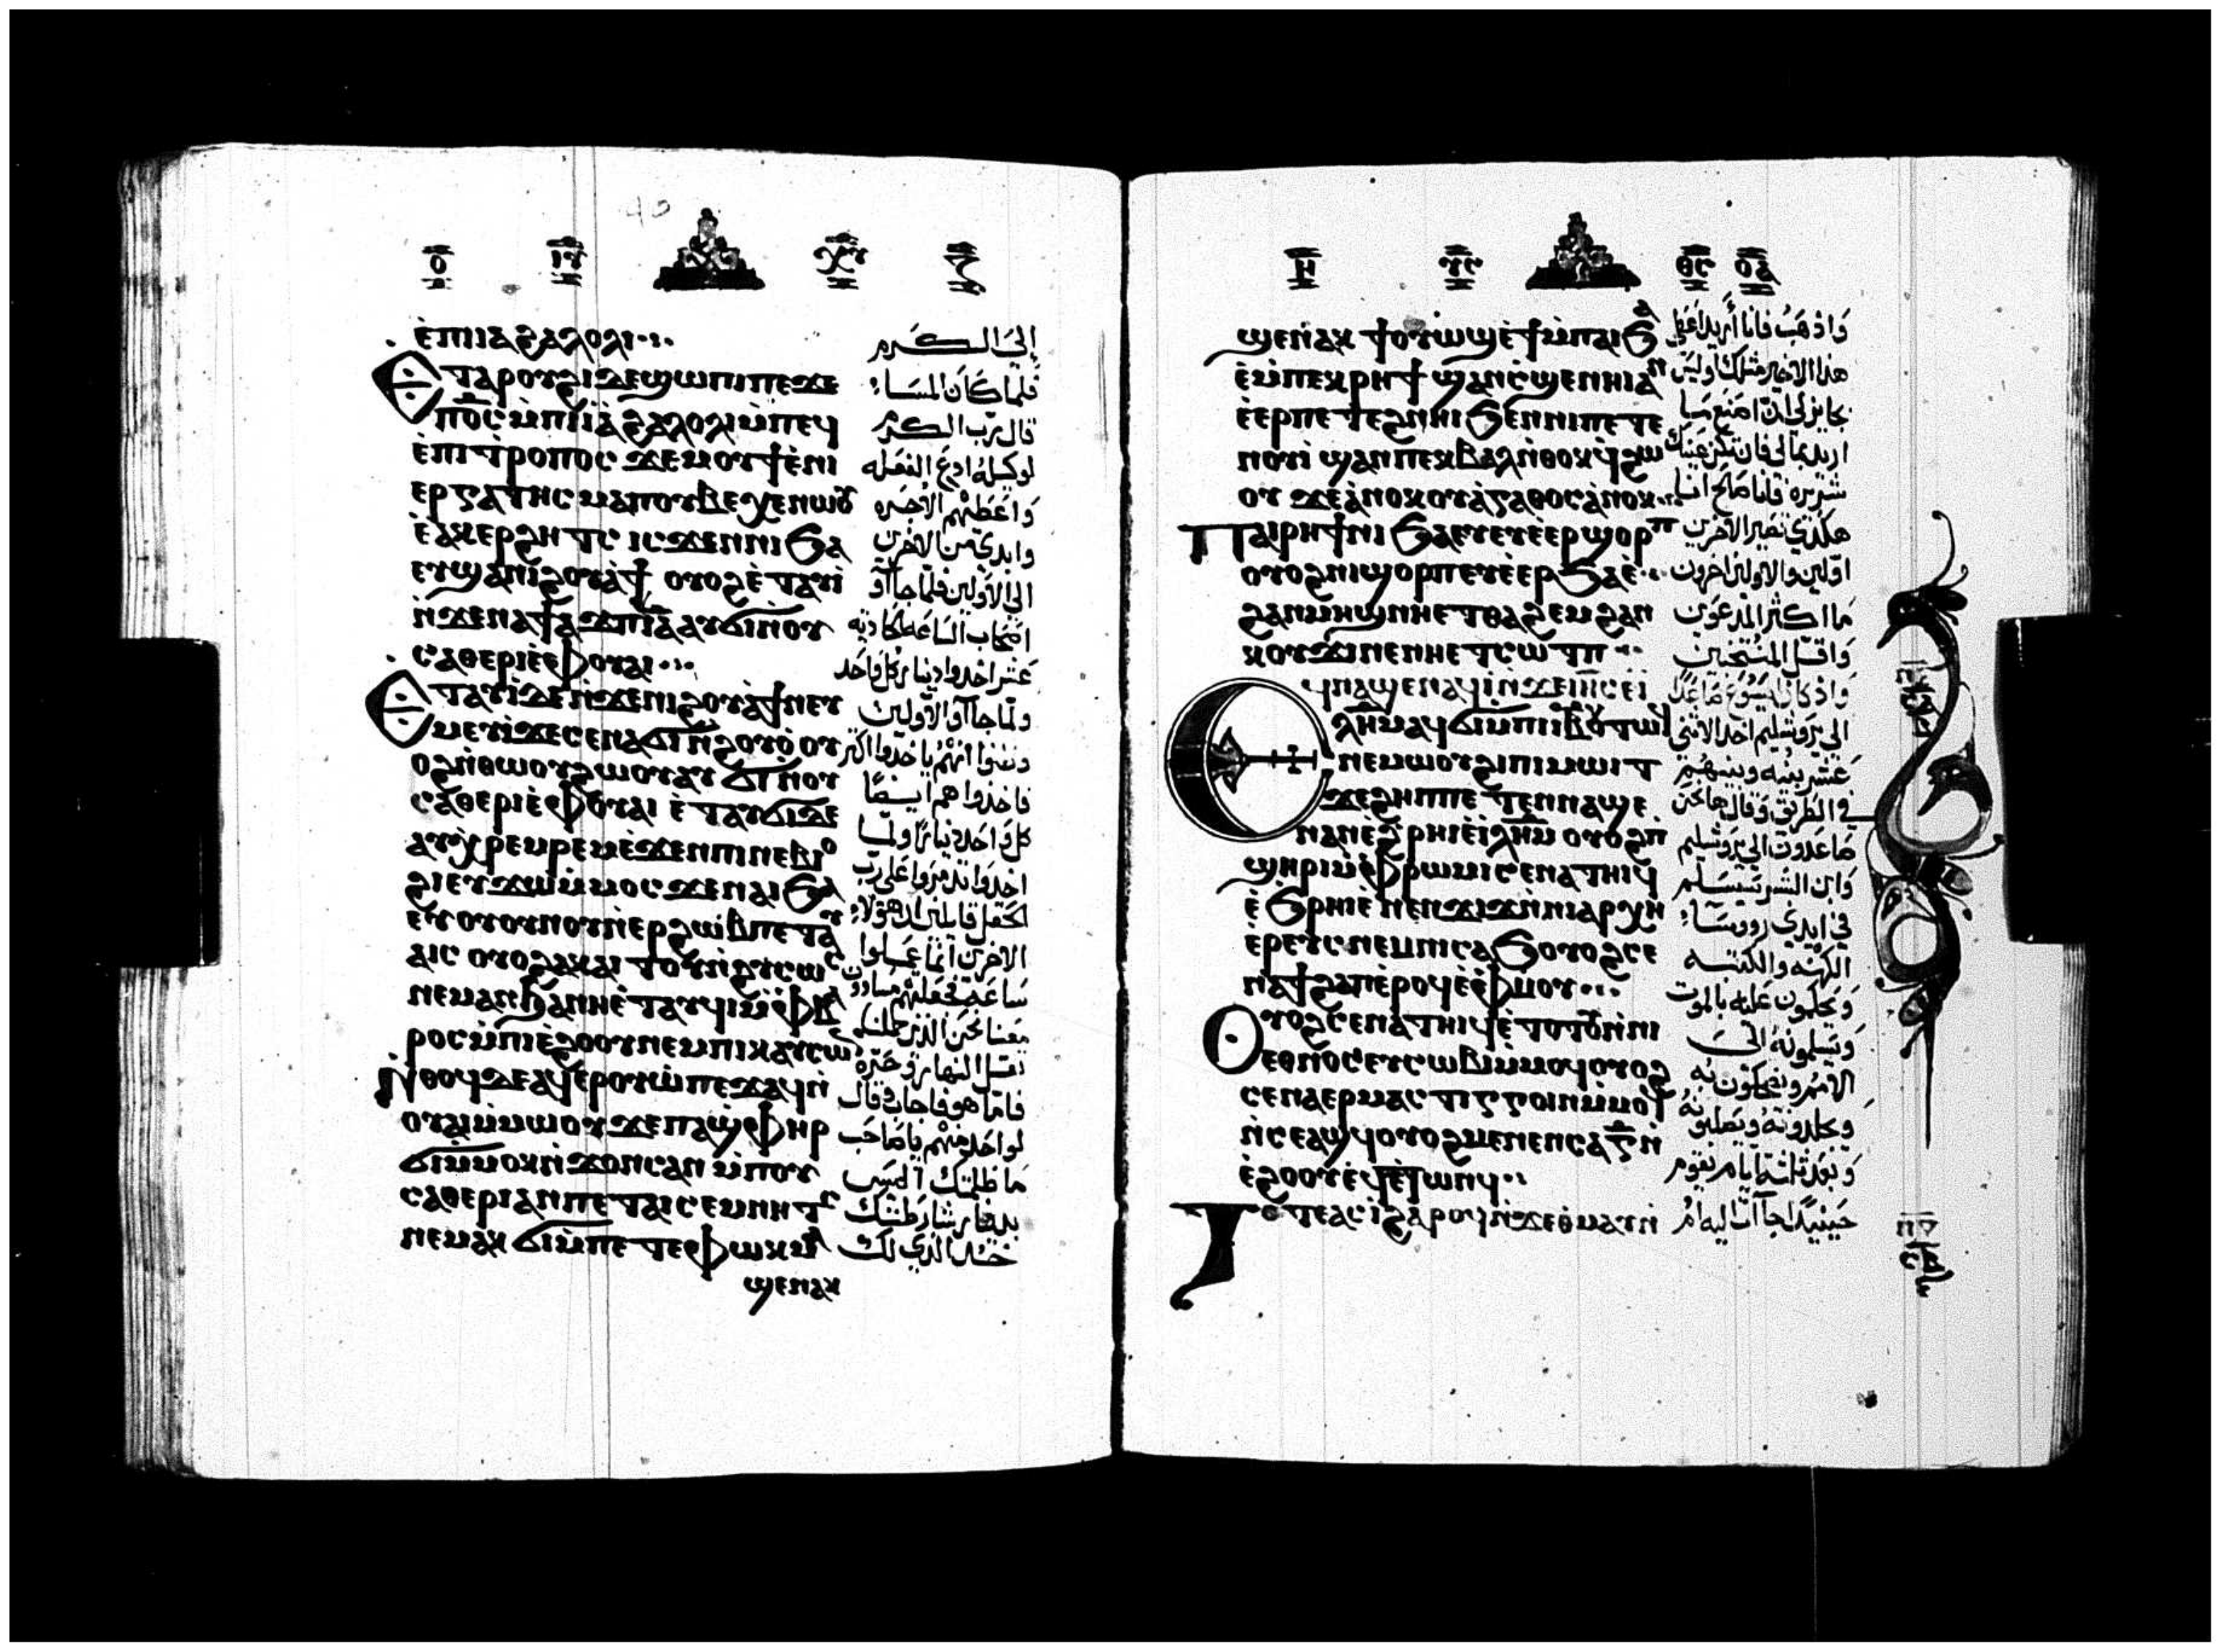 ⲟ ⲓⲩ ⲭⲩ ⲍ
ⲉ̀ⲡⲓⲓⲁϩⲁⲗⲟⲗⲓ
ⲉⲧⲁⲣⲟⲩϩⲓ ⲇⲉϣⲱⲡⲓⲡⲉϫⲉ
ⲡⲟ̅ⲥ̅ ⲙ̀ⲡⲓⲓⲁϩⲁⲗⲟⲗⲓⲙ̀ⲡⲉϥ
ⲉ̀ⲡⲓⲧⲣⲟⲡⲟⲥ ϫⲉⲙⲟⲩϯⲉ̀ⲛⲓ
ⲉⲣⲅⲁⲧⲏⲥⲙⲁⲡⲟⲩⲃⲉⲭⲉⲛⲱⲟⲩ
ⲉ̀ⲁⲕⲉⲣϩⲏⲧⲥ ⲓⲥϫⲉⲛⲛⲓϧⲁ
ⲉⲩϣⲁⲛⲓϩⲟⲩⲁ̀ϯ ⲟⲩⲟϩⲉ̀ⲧⲁⲩⲓ̀
ⲛ̀ϫⲉⲛⲁϯⲁϫⲡⲓ̅ⲁ̅ ⲁⲩϭⲓⲛ̀ⲟⲩ
ⲥⲁⲑⲉⲣⲓⲉ̀ⲫⲟⲩⲁⲓ
ⲉⲧⲁⲩⲓ̀ⲇⲉⲛ̀ϫⲉⲛⲓϩⲟⲩⲁ̀ϯⲛⲉⲩ
ⲙⲉⲩⲓ̀ϫⲉⲥⲉⲛⲁϭⲓⲛ̀ϩⲟⲩⲟ̀ ⲟⲩ
ⲟϩⲛ̀ⲑⲱⲟⲩϩⲱⲟⲩⲁⲩ ϭⲓⲛ̀ⲟⲩ
ⲥⲁⲑⲉⲣⲓⲉ̀ⲫⲟⲩⲁⲓ ⲉ̀ⲧⲁⲩϭⲓⲇⲉ
ⲁⲩⲭⲣⲉⲙⲣⲉⲙⲉ̀ϫⲉⲛⲡⲓⲛⲉⲃⲓⲟ
ϩⲓⲉⲩϫⲱⲙ̀ⲙⲟⲥ ϫⲉⲛⲁⲓϧⲁ
ⲉⲩⲟⲩⲟⲩⲛⲟⲩⲛ̀ⲉⲣϩⲱⲃⲡⲉⲧⲁⲩ
ⲁⲓⲥ ⲟⲩⲟϩⲁⲕⲁⲓ ⲧⲟⲩⲛ̀ϩⲩⲥⲱⲥ
ⲛⲉⲙⲁⲛϧⲁⲛⲏⲉ̀ⲧⲁⲩϥⲓⲙ̀ⲫⲃⲁ
ⲣⲟⲥⲙ̀ⲡⲓⲉ̀ϩⲟⲟⲩⲛⲉⲙⲡⲓⲕⲁⲩⲥⲱⲛ
ⲛ̀ⲑⲟϥⲇⲉⲁϥⲉⲣⲟⲩⲱ̀ⲡⲉϫⲁϥⲛ̀
ⲟⲩⲁⲓⲙ̀ⲙⲱⲟⲩϫⲉⲡⲁϣ̀ⲫⲏⲣ
ϭⲓⲙ̀ⲙⲟⲕⲛ̀ϫⲟⲛⲥⲁⲛ ⲙ̀ⲡⲟⲩ
ⲥⲁⲑⲉⲣⲓⲁⲛⲡⲉⲧⲁⲓⲥⲉⲙⲛⲏⲧⲥ
ⲛⲉⲙⲁⲕ ϭⲓⲙ̀ⲡⲉⲧⲉⲫⲱⲕⲙ̀
ϣⲉⲛⲁⲕ
إلى الكرم
فلما كان المسا
قال رب الكرم
لوكيله ادع الفعله
واعطهم الاجره
وابدي من الاخرين
الي الاولين فلما جاآو
اصحاب الساعه الحاديه
عشر اخدوا دينار كل واحد
ولما جاآوا الاولين
وظنوا انهم ياخدوا اكثر
فاخذوا هم ايضًا
كل واحد دينارًا ولما
اخدوا تدمروا على رب
الحقل قايلين ان هولا
الاخرين انما عملوا
ساعه فجعلتهم مساوون
معنا نحن الذين حملنا
ثقل النهار وحره
فاما هو فاجاب وقال
لواحد منهم يا صاحب
ما ظلمتك اليس
بدينار شارطتك
خذ الذي لك
ⲏ ⲩⲥ ⲑⲥ ⲟⲁ
ϣⲉⲛⲁⲕ ϯⲟⲩⲱ̀ϣⲉ̀ϯⲙ̀ⲡⲁⲓϧⲁ
ⲉ̀ⲙ̀ⲡⲉⲕⲣⲏϯ ϣⲁⲛⲥ̀ϣⲉⲛⲏⲓⲁⲛ
ⲉ̀ⲉⲣⲡⲉⲧⲉϩⲛⲏⲓϧⲉⲛⲛⲓⲡⲉⲧⲉ
ⲛⲟⲩⲓ̀ ϣⲁⲛⲡⲉⲕⲃⲁⲗⲛ̀ⲑⲟⲕϥ̀ϩⲱ
ⲟⲩ ϫⲉⲁ̀ⲛⲟⲕⲟⲩⲁ̀ⲅⲁⲑⲟⲥⲁ̀ⲛⲟⲕ
ⲡⲁⲓⲣⲏϯⲛⲓϧⲁⲉⲩⲉⲩⲉ̀ⲉⲣϣⲟⲣⲡ
ⲟⲩⲟϩⲛⲓϣⲟⲣⲡⲉⲩⲉ̀ⲉⲣϧⲁⲉ̀
ϩⲁⲛⲙⲏϣⲛⲏⲉⲧⲑⲁϩⲉⲙϩⲁⲛ
ⲕⲟⲩϫⲓⲛⲉⲛⲏⲉⲧⲥⲱⲧⲡ
ϥⲛⲁϣⲉⲛⲁϥⲓ̀ⲛ̀ϫⲉⲓⲏ̅ⲥ̅ⲉ̀ⲓ̀
ⲗ̅ⲏ̅ⲙ̅ⲁϥϭⲓⲙ̀ⲡⲓⲓ̅ⲃ̅ⲟⲩⲧⲱϥ
ⲛⲉⲙⲱⲟⲩϩⲓⲡⲓⲙⲱⲓⲧ
ϫⲉϩⲏⲡⲡⲉ ⲧⲉⲛⲛⲁϣⲉ
ⲛⲁⲛⲉ̀ϩ̀ⲣⲏⲓⲉ̀ⲓ̅ⲗ̅ⲏ̅ⲙ̅ ⲟⲩⲟϩⲡ̀
ϣⲏⲣⲓⲙ̀ⲫⲣⲱⲙⲓⲥⲉⲛⲁⲧⲏⲓϥ
ⲉ̀ϧⲣⲏⲓⲉ̀ⲛⲉⲛϫⲓϫⲛ̀ⲛⲓⲁⲣⲭⲏ
ⲉ̀ⲣⲉⲩⲥⲛⲉⲙⲛⲓⲥⲁϧⲟⲩⲟϩⲥⲉ
ⲛⲁϯϩⲁⲡⲉ̀ⲣⲟϥⲉ̀ⲫⲙⲟⲩ
ⲟⲩⲟϩⲥⲉⲛⲁⲧⲏⲓϥⲉ̀ⲧⲟⲧⲟⲩⲛ̀ⲛⲓ
ⲉⲑⲛⲟⲥⲉⲩⲥⲱⲃⲓⲙ̀ⲙⲟϥⲟⲩⲟϩ
ⲥⲉⲛⲁⲉⲣⲙⲁⲥⲧⲓⲅⲅⲟⲓⲛⲙ̀ⲙⲟϥ
ⲛ̀ⲥⲉⲁϣϥⲟⲩⲟϩⲙⲉⲛⲉⲛⲥⲁⲅ̅ⲛ̀
ⲉ̀ϩⲟⲟⲩⲉϥⲉ̀ⲧⲱⲛϥ
ⲧⲟⲧⲉⲁⲥⲓ̀ϩⲁⲣⲟϥⲛ̀ϫⲉⲑ̀ⲙⲁⲩⲛ̀
واذهب فانا أريد اعطي
هذا الاخير مثلك وليس
بجايز لي ان اصنع ما
اريد بمالي فان تكن عينك
شريره فانا صالح انا
هكذي تصير الاخرين
اولين والاولين اخرون
ما اكثر المدعوين
واقل المنتخبين
واذ كان يسوع صاعدًا
الي يروشليم اخد الاثني
عشر بينه وبينهم
في الطريق وقال ها نحن
صاعدون الي يروشليم
وابن البشر سيسلم
في ايدي روسا
الكهنه والكتبه
ويحكمون عليه بالموت
ويسلمونه الى
الامم ويضحكون به
ويجلدونه ويصلبونه
وبعد ثلثة ايام يقوم
حينيدًا جاآت اليه ام